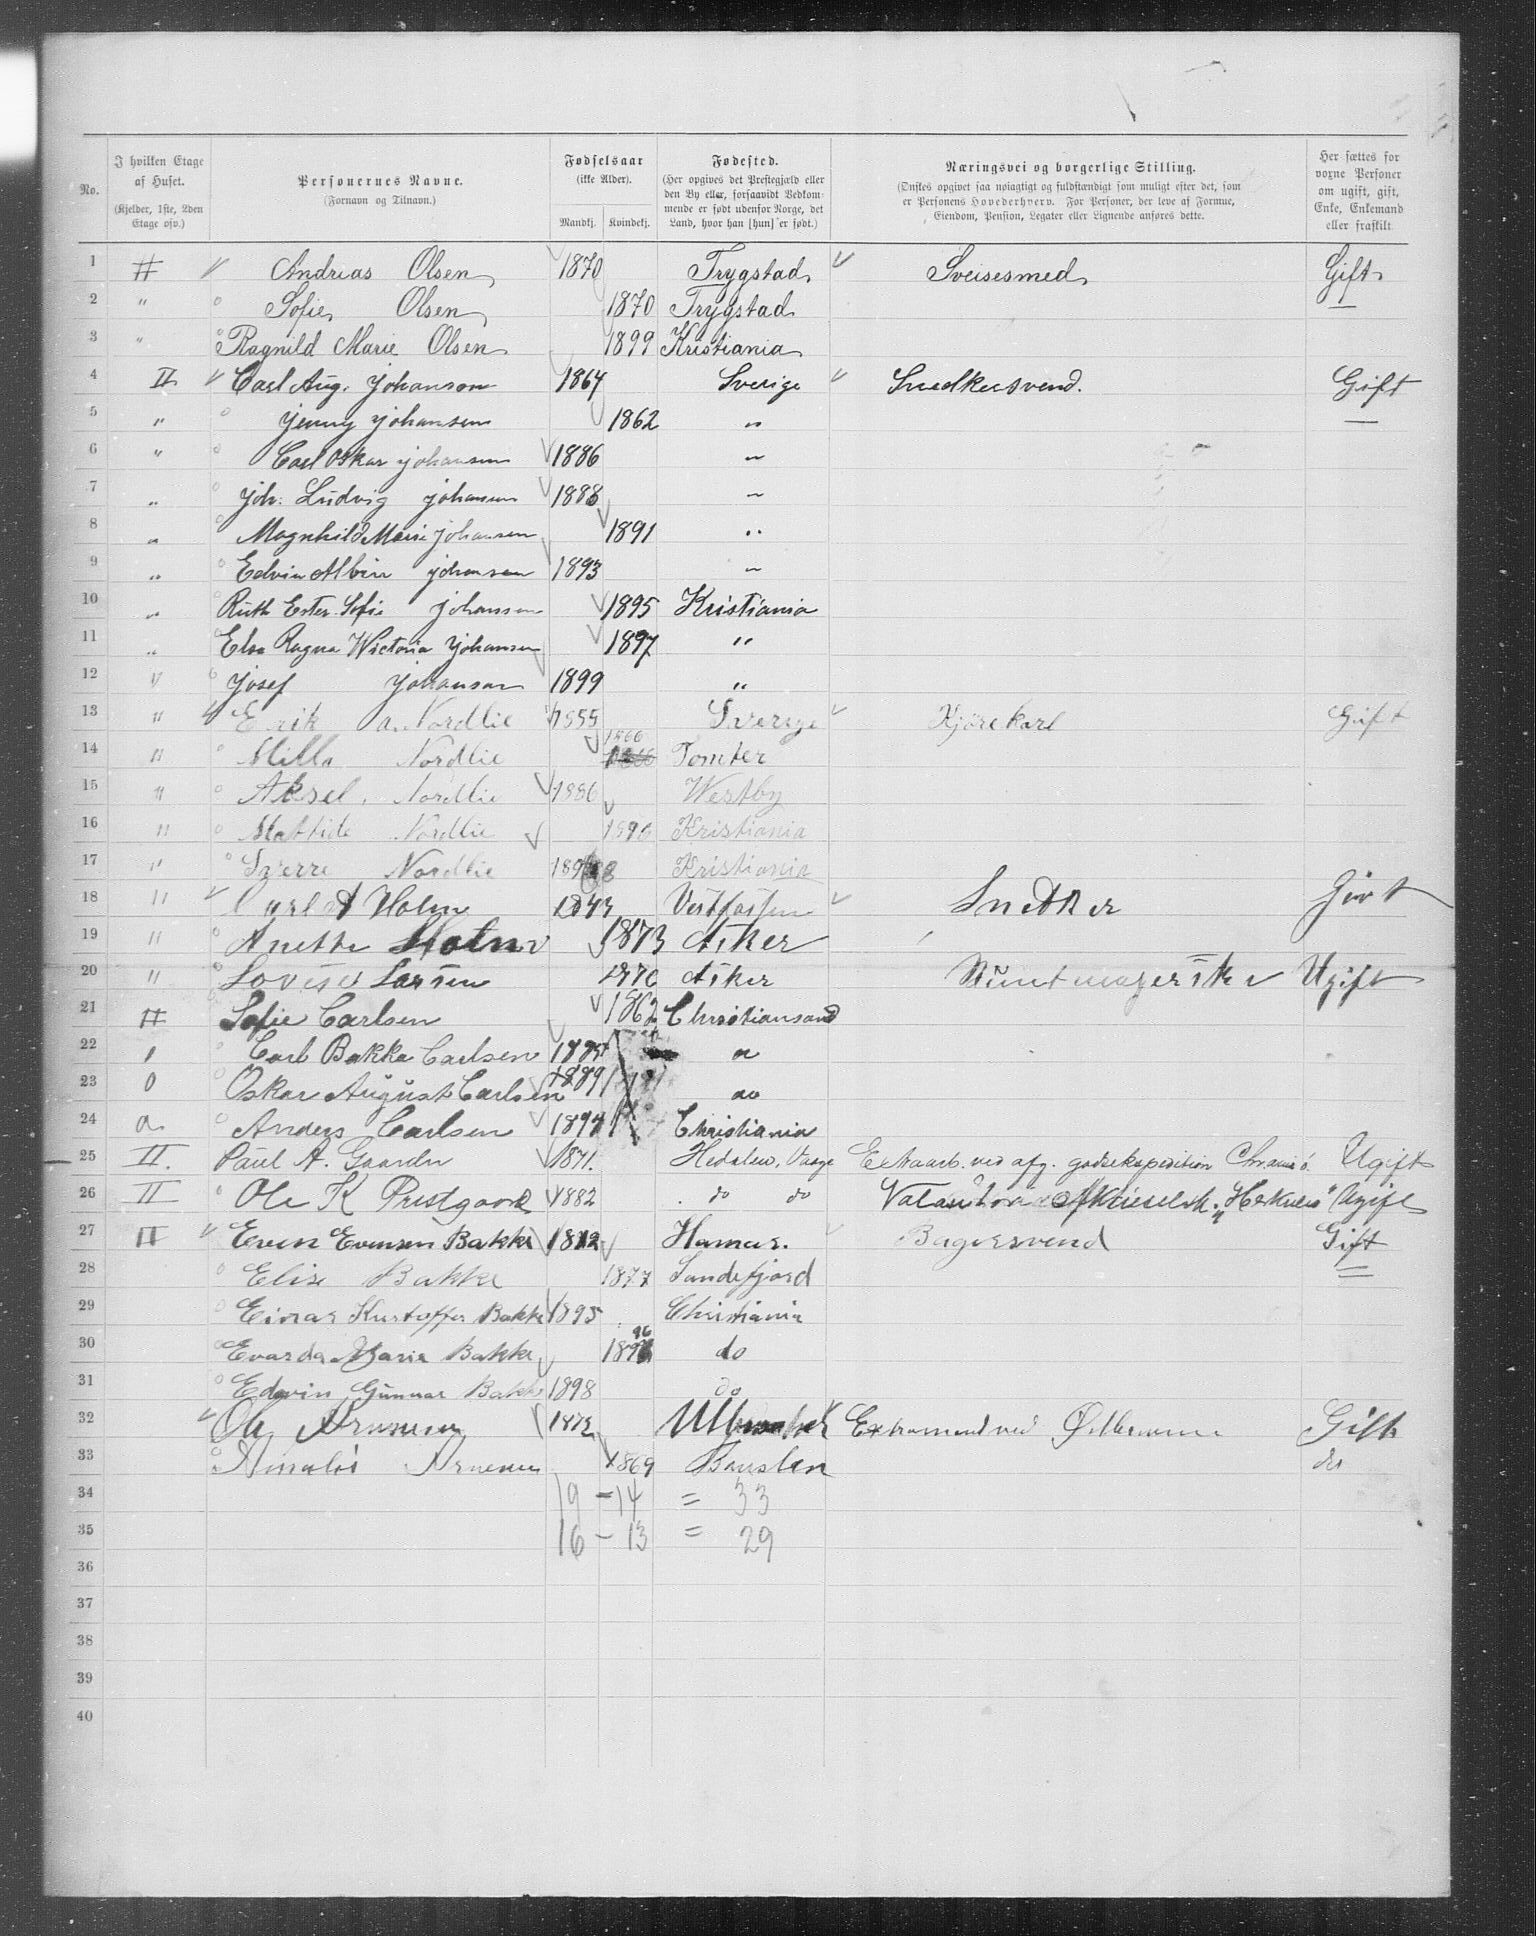 No. I hvilken Etage af Huset. (Kjelder, 1ste, 2den Etage osv.) Personernes Navne. (Fornavn og Tilnavn.) Fødselsaar (ikke Alder). Mandkj. Kvindekj. Fødested. (Her opgives det Præstegjæld eller den By eller, forsaavidt Vedkommende er født udenfor Norge, det Land, hvor han [hun] er født.) Næringsvei og borgerlige Stilling. (Ønskes opgivet saa nøiagtigt og fuldstændigt som muligt efter det, som er Personens Hovederhverv. For Personer, der leve af Formue, Eiendom, Pension, Legater eller Lignende anføres dette. Her sættes for voxne Personer om ugift, gift, Enke, Enkemand eller fraskilt.
1 II Andreas Olsen 1870 Trygstad Sveisesmed Gift
2 " Sofie Olsen 1870 Trygstad —
3 " Ragnild Marie Olsen 1899 Kristiania
4 II Carl Aug. Johanson 1864 Sverige Snedkersvend. Gift
5 " Jenny Johansen 1862 " —
6 " Carl Oskar Johansen 1886 "
7 " Joh. Ludvig Johansen 1888 "
8 " Magnhild Marie Johansen 1891 "
9 " Edvin Albin Johansen 1893 "
10 " Ruth Ester Sofie Johansen 1895 Kristiania
11 " Elsa Ragna Wictoria Johansen 1897 "
12 " Josef Johansen 1899 "
13 " Erik A. Nordlie 1855 Sverige Kjørekarl Gift
14 " Milla Nordlie 1866 Tomter
15 " Aksel Nordlie 1886 Westby
16 " Mattide Nordlie 1896 Kristiania
17 " Sverre Nordlie 1898 Kristiania
18 " Holm 1843 Vestfossen Snedker Givt
19 " Anette Holm 1873 Asker
20 " Lovise Larsen 1876 Asker Ugift
21 II Sofie Carlsen 1862 Christiansand
22 " Carl Bakke Carlsen 1885
23 " Oskar August Carlsen 1889 do
24 " Anders Carlsen 1894 Christiania
25 II. Paul A. Gaarder 1871. Hedalen, Vaage Extraarb. ved afg. godsekspedition Chrania Ø Ugift
26 II Ole K Prestgaard 1882 do do "Herkules" Ugift
27 II Even Evensen Bakke 1872 Hamar. Bagersvend Gift
28 Elise Bakke 1877 Sandefjord =
29 Einar Kristoffer Bakke 1895 Christiania
30 Evarda Marie Bakke 1896 do
31 Edvin Gunnar Bakke 1898 do
32 Ole 1872 Extramand ved Gift
33 1869 do
34 19 - 14 = 33
35 16 - 13 = 29
36
37
38
39
40